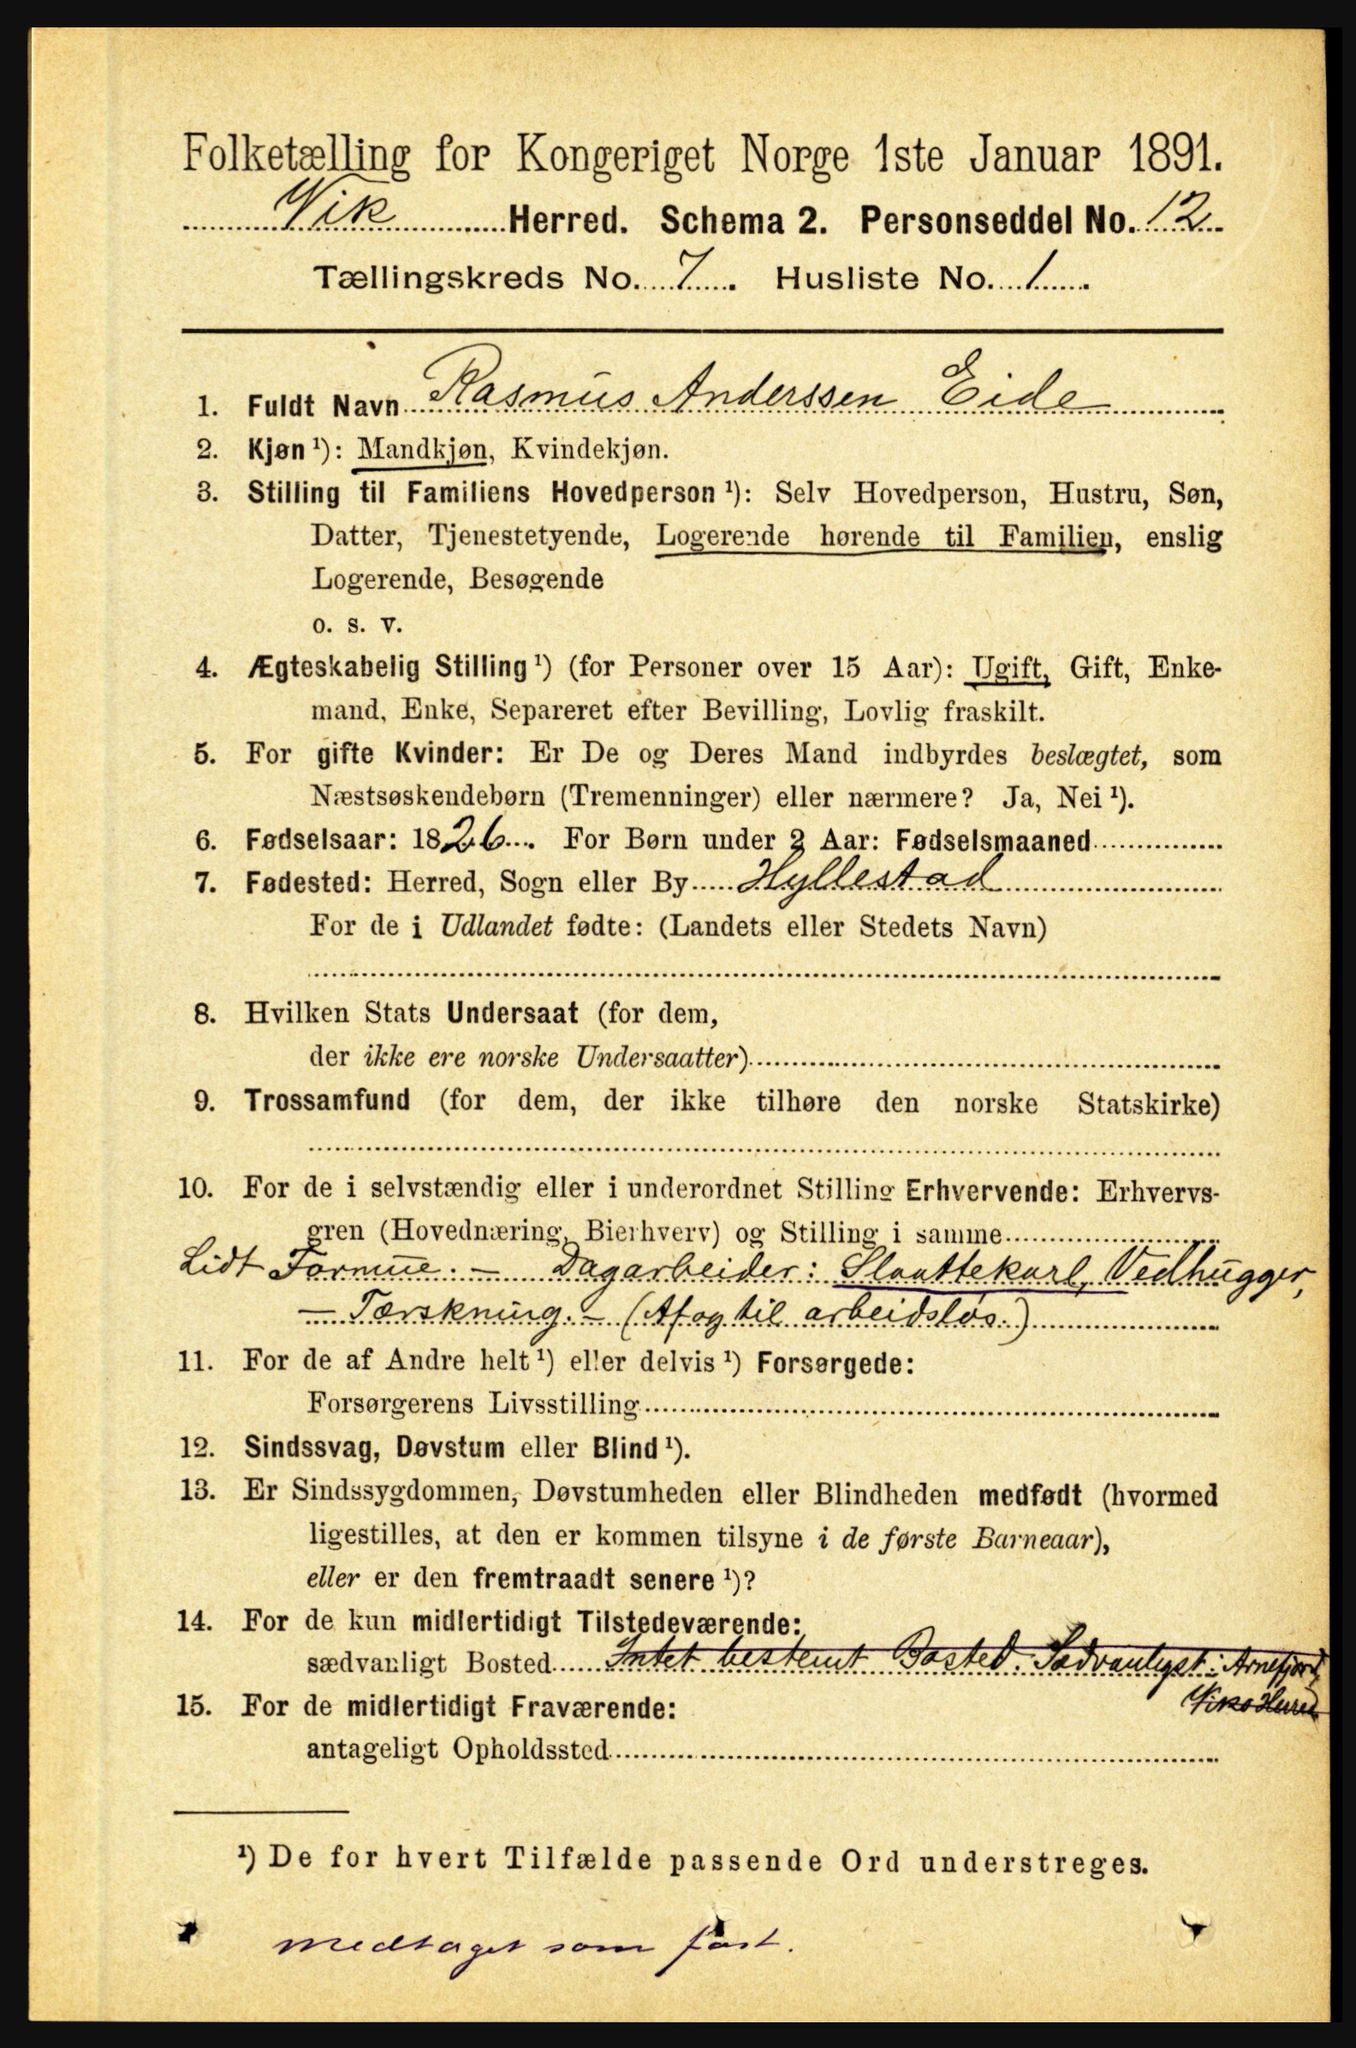 Folketælling for Kongeriget Norge 1ste Januar 1891.
Vik Herred. Schema 2. Personseddel No. 12
Tællingskreds No. 7. Husliste No. 1.
1. Fuldt Navn Rasmus Anderssen Eide
2. Kjøn ¹): Mandkjøn, Kvindekjøn.
3. Stilling til Familiens Hovedperson ¹): Selv Hovedperson, Hustru, Søn,
Datter, Tjenestetyende, Logerende hørende til Familien, enslig
Logerende, Besøgende
o. s. v.
4. Ægteskabelig Stilling ¹) (for Personer over 15 Aar): Ugift, Gift, Enke-
mand, Enke, Separeret efter Bevilling, Lovlig fraskilt.
5. For gifte Kvinder: Er De og Deres Mand indbyrdes beslægtet, som
Næstsøskendebørn (Tremenninger) eller nærmere? Ja, Nei ¹).
6. Fødselsaar: 1826. For Børn under 2 Aar: Fødselsmaaned
7. Fødested: Herred, Sogn eller By Hyllestad
For de i Udlandet fødte: (Landets eller Stedets Navn)
8. Hvilken Stats Undersaat (for dem,
der ikke ere norske Undersaatter)
9. Trossamfund (for dem, der ikke tilhøre den norske Statskirke)
10. For de i selvstændig eller i underordnet Stilling Erhvervende: Erhvervs-
gren (Hovednæring, Bierhverv) og Stilling i samme
Lidt Formue. – Dagarbeider: Slaattekarl, Vedhugger,
– Tærskning. – (Af og til arbeidsløs.)
11. For de af Andre helt ¹) eller delvis ¹) Forsørgede:
Forsørgerens Livsstilling
12. Sindssvag, Døvstum eller Blind ¹).
13. Er Sindssygdommen, Døvstumheden eller Blindheden medfødt (hvormed
ligestilles, at den er kommen tilsyne i de første Barneaar),
eller er den fremtraadt senere ¹)?
14. For de kun midlertidigt Tilstedeværende:
sædvanligt Bosted Intet bestemt Bosted. Sædvanligst: Arnefjord,
Viks Herred
15. For de midlertidigt Fraværende:
antageligt Opholdssted
¹) De for hvert Tilfælde passende Ord understreges.
medtaget som fast.